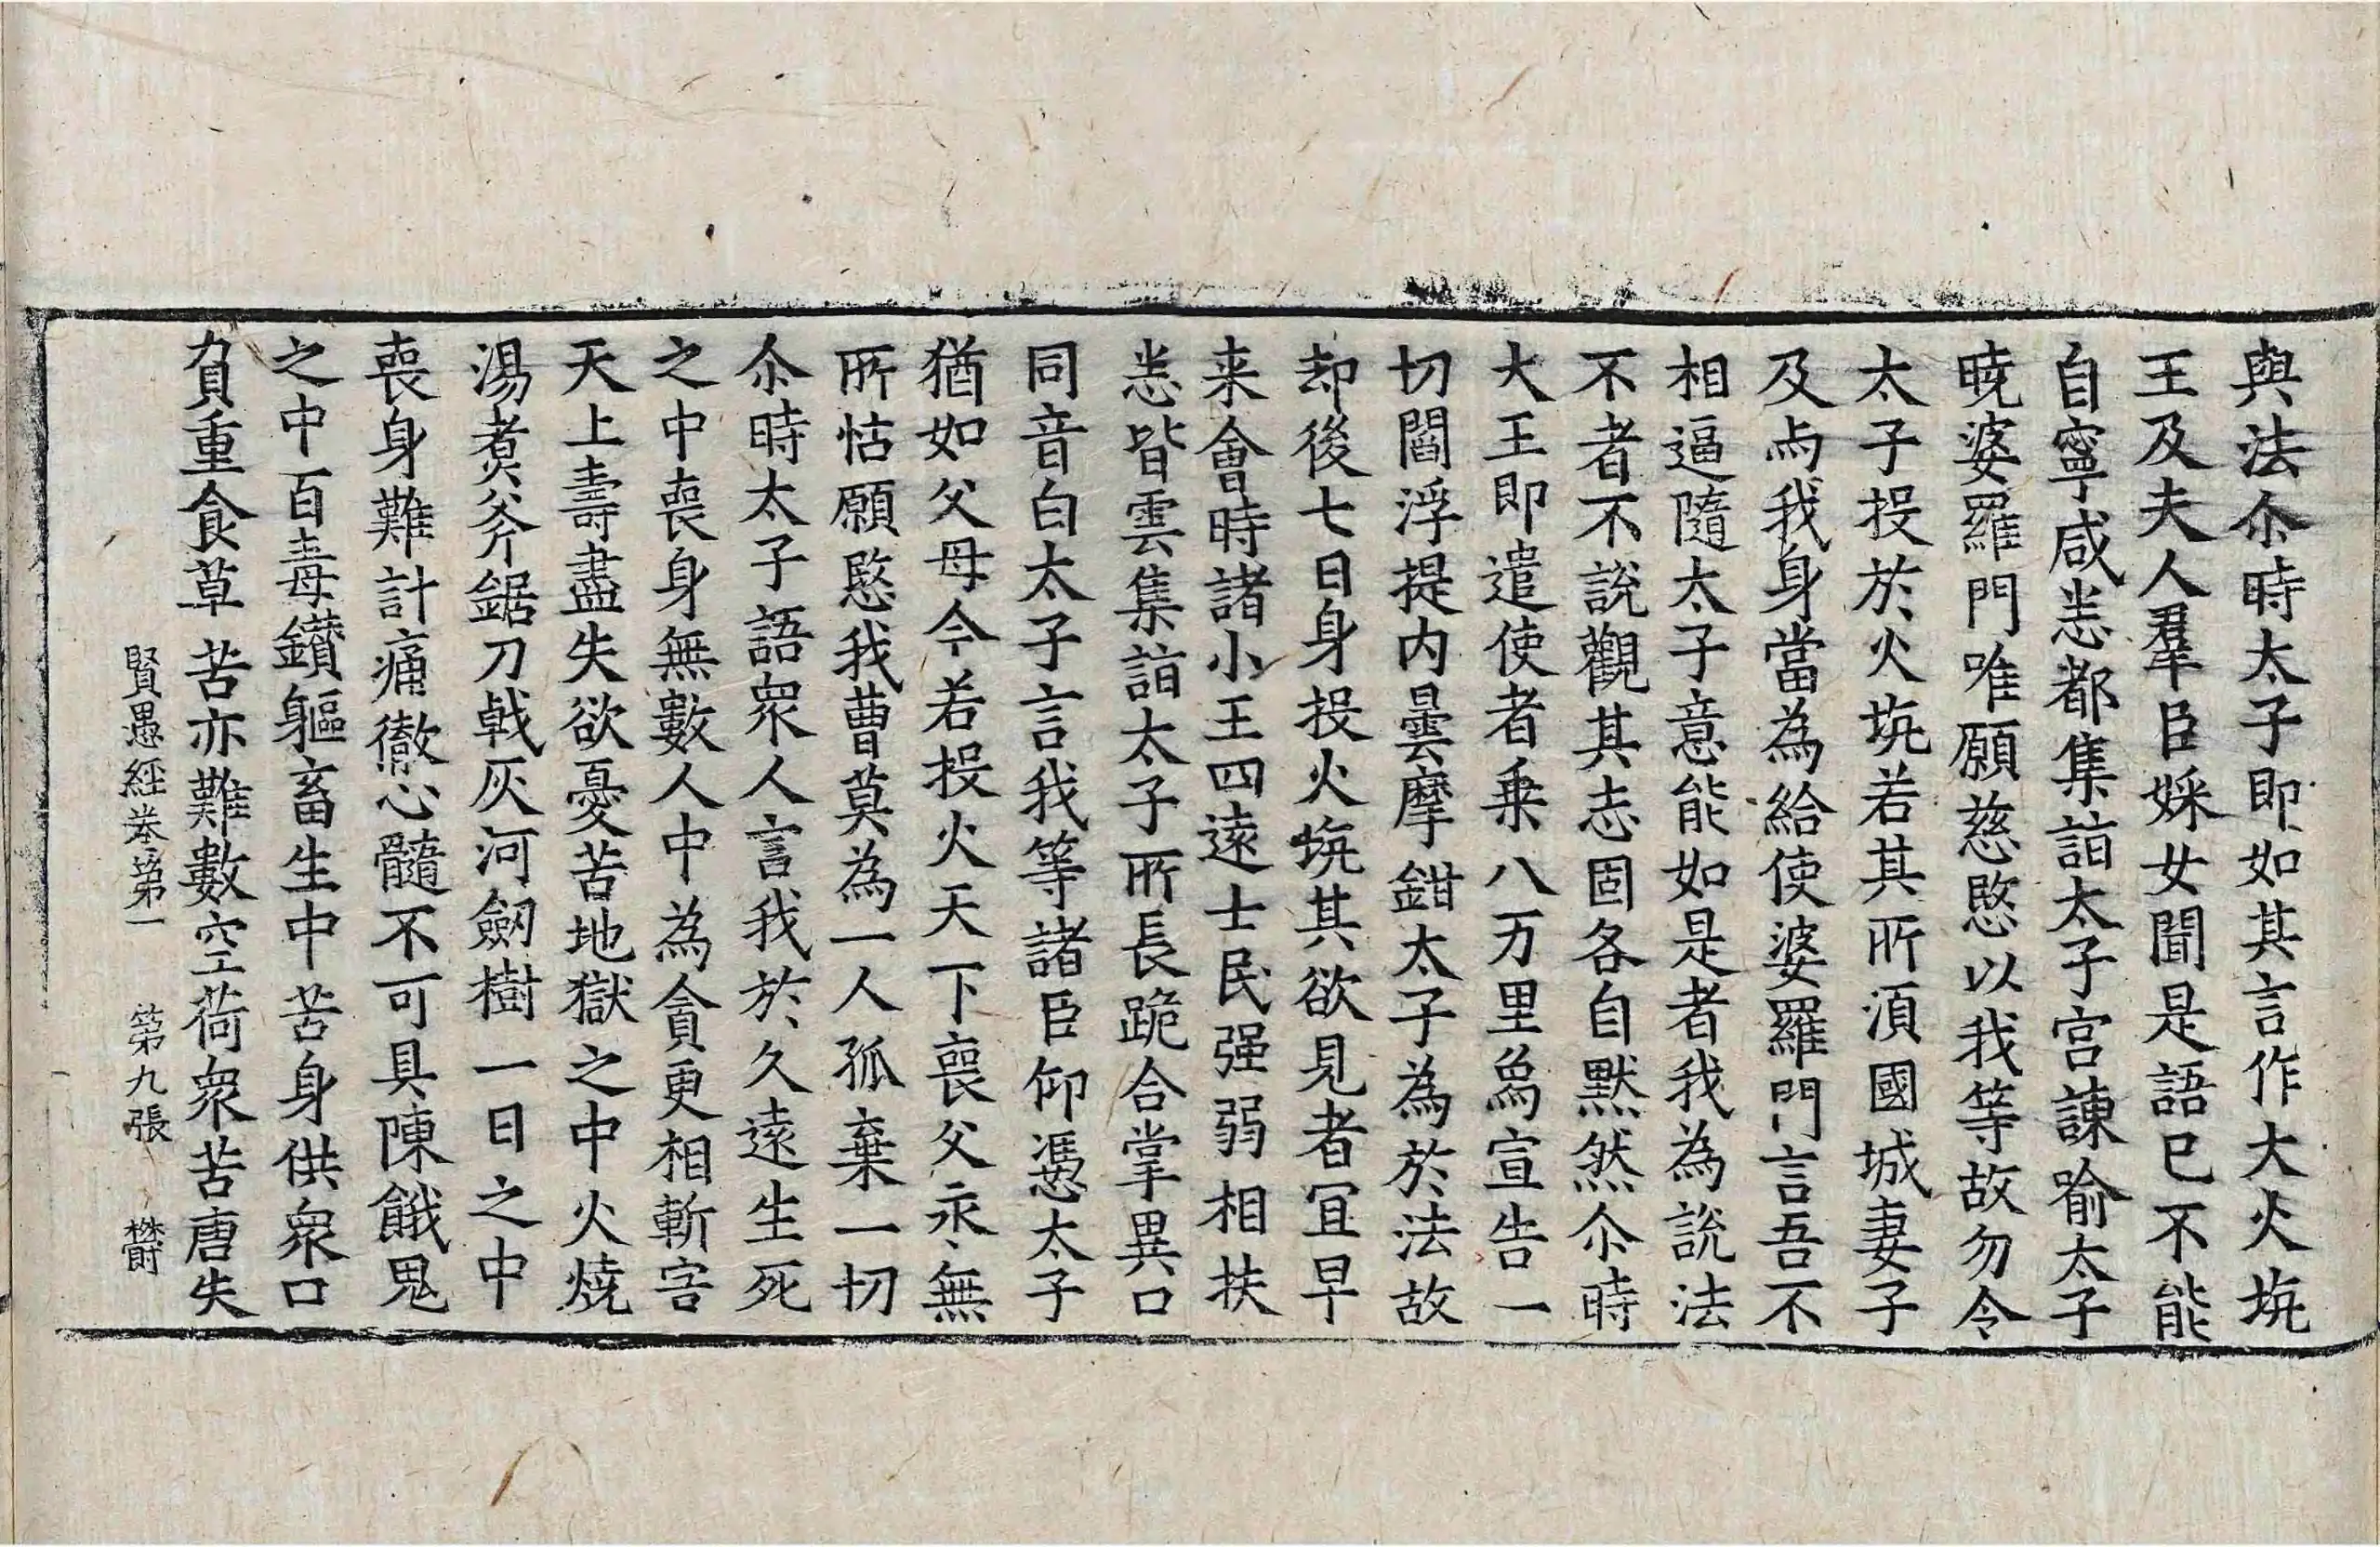 與法尒時太子即如其言作大火坑
王及夫人羣臣婇女聞是語已不能
自寧咸悉都集詣太子宮諫喻太子
曉婆羅門唯願慈愍以我等故勿令
太子投於火坑若其所湏國城妻子
及与我身當為給使婆羅門言吾不
相逼隨太子意能如是者我為說法
不者不說觀其志固各自默然尒時
大王即遣使者乗八万里爲宣告一
切閻浮提内曇摩鉗太子為於法故
却後七日身投火坑其欲見者冝早
来會時諸小王四逺士民强弱相扶
悉皆雲集詣太子所長跪合掌異口
同音白太子言我等諸臣仰憑太子
猶如父母今若投火天下喪父永無
所怙願愍我曹莫為一人孤棄一切
尒時太子語衆人言我於久逺生死
之中喪身無數人中為貪更相斬害
天上壽盡失欲憂苦地獄之中火燒
湯煮斧鋸刀戟灰河劒樹一日之中
喪身難計痛徹心髓不可具陳餓鬼
之中百毒鑽軀畜生中苦身供衆口
負重食草苦亦難數空荷衆苦唐失
賢愚經卷第一 第九張 欝